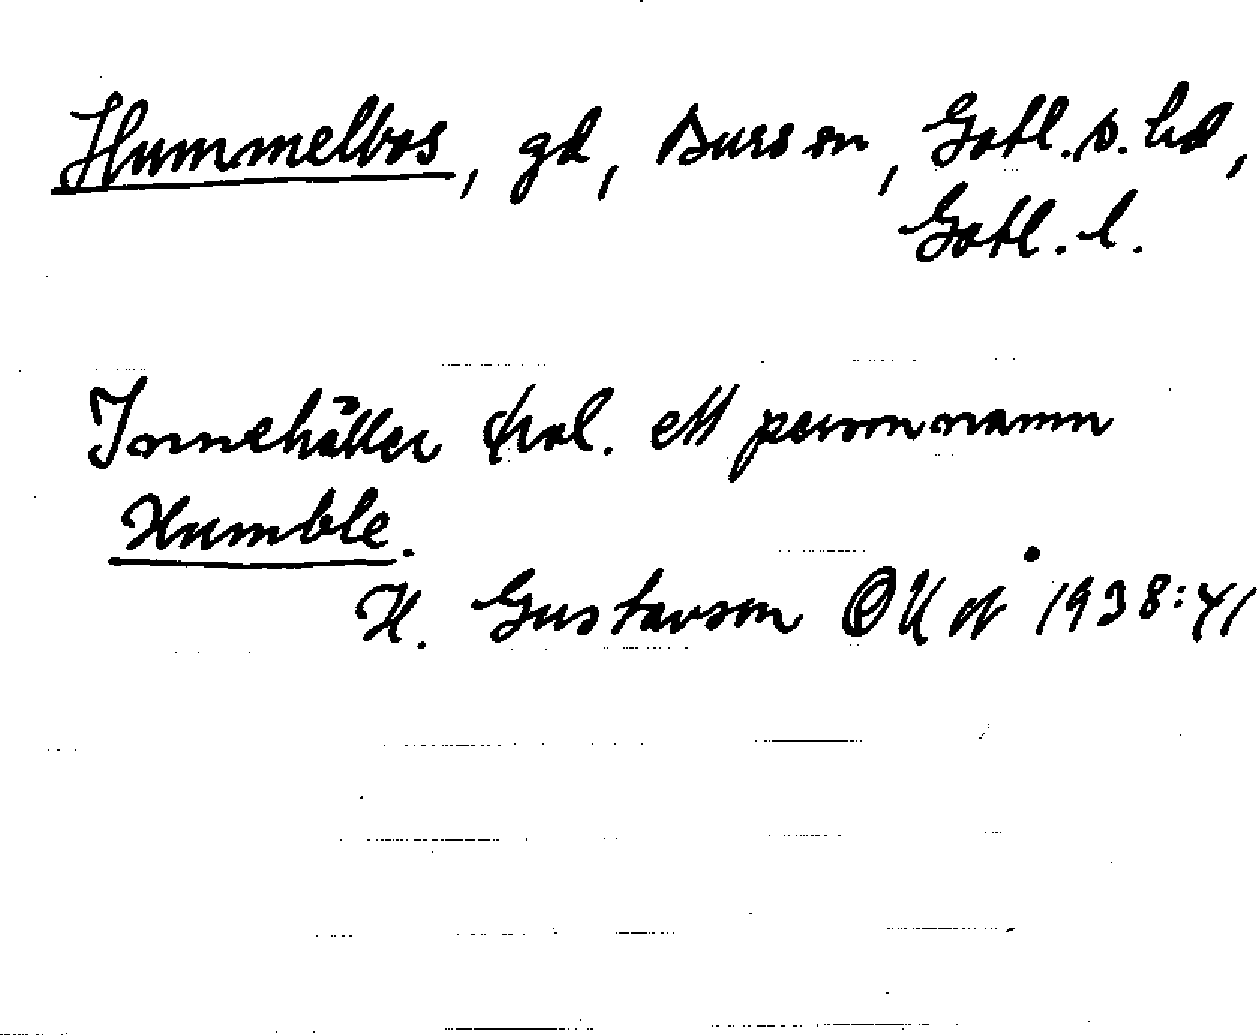 Hummelbos, gd, Burs sn, Gotl. s. hd,
Gotl. l.
Innehåller trol. ett personnamn
Humble.
H. Gustavson 1938:41